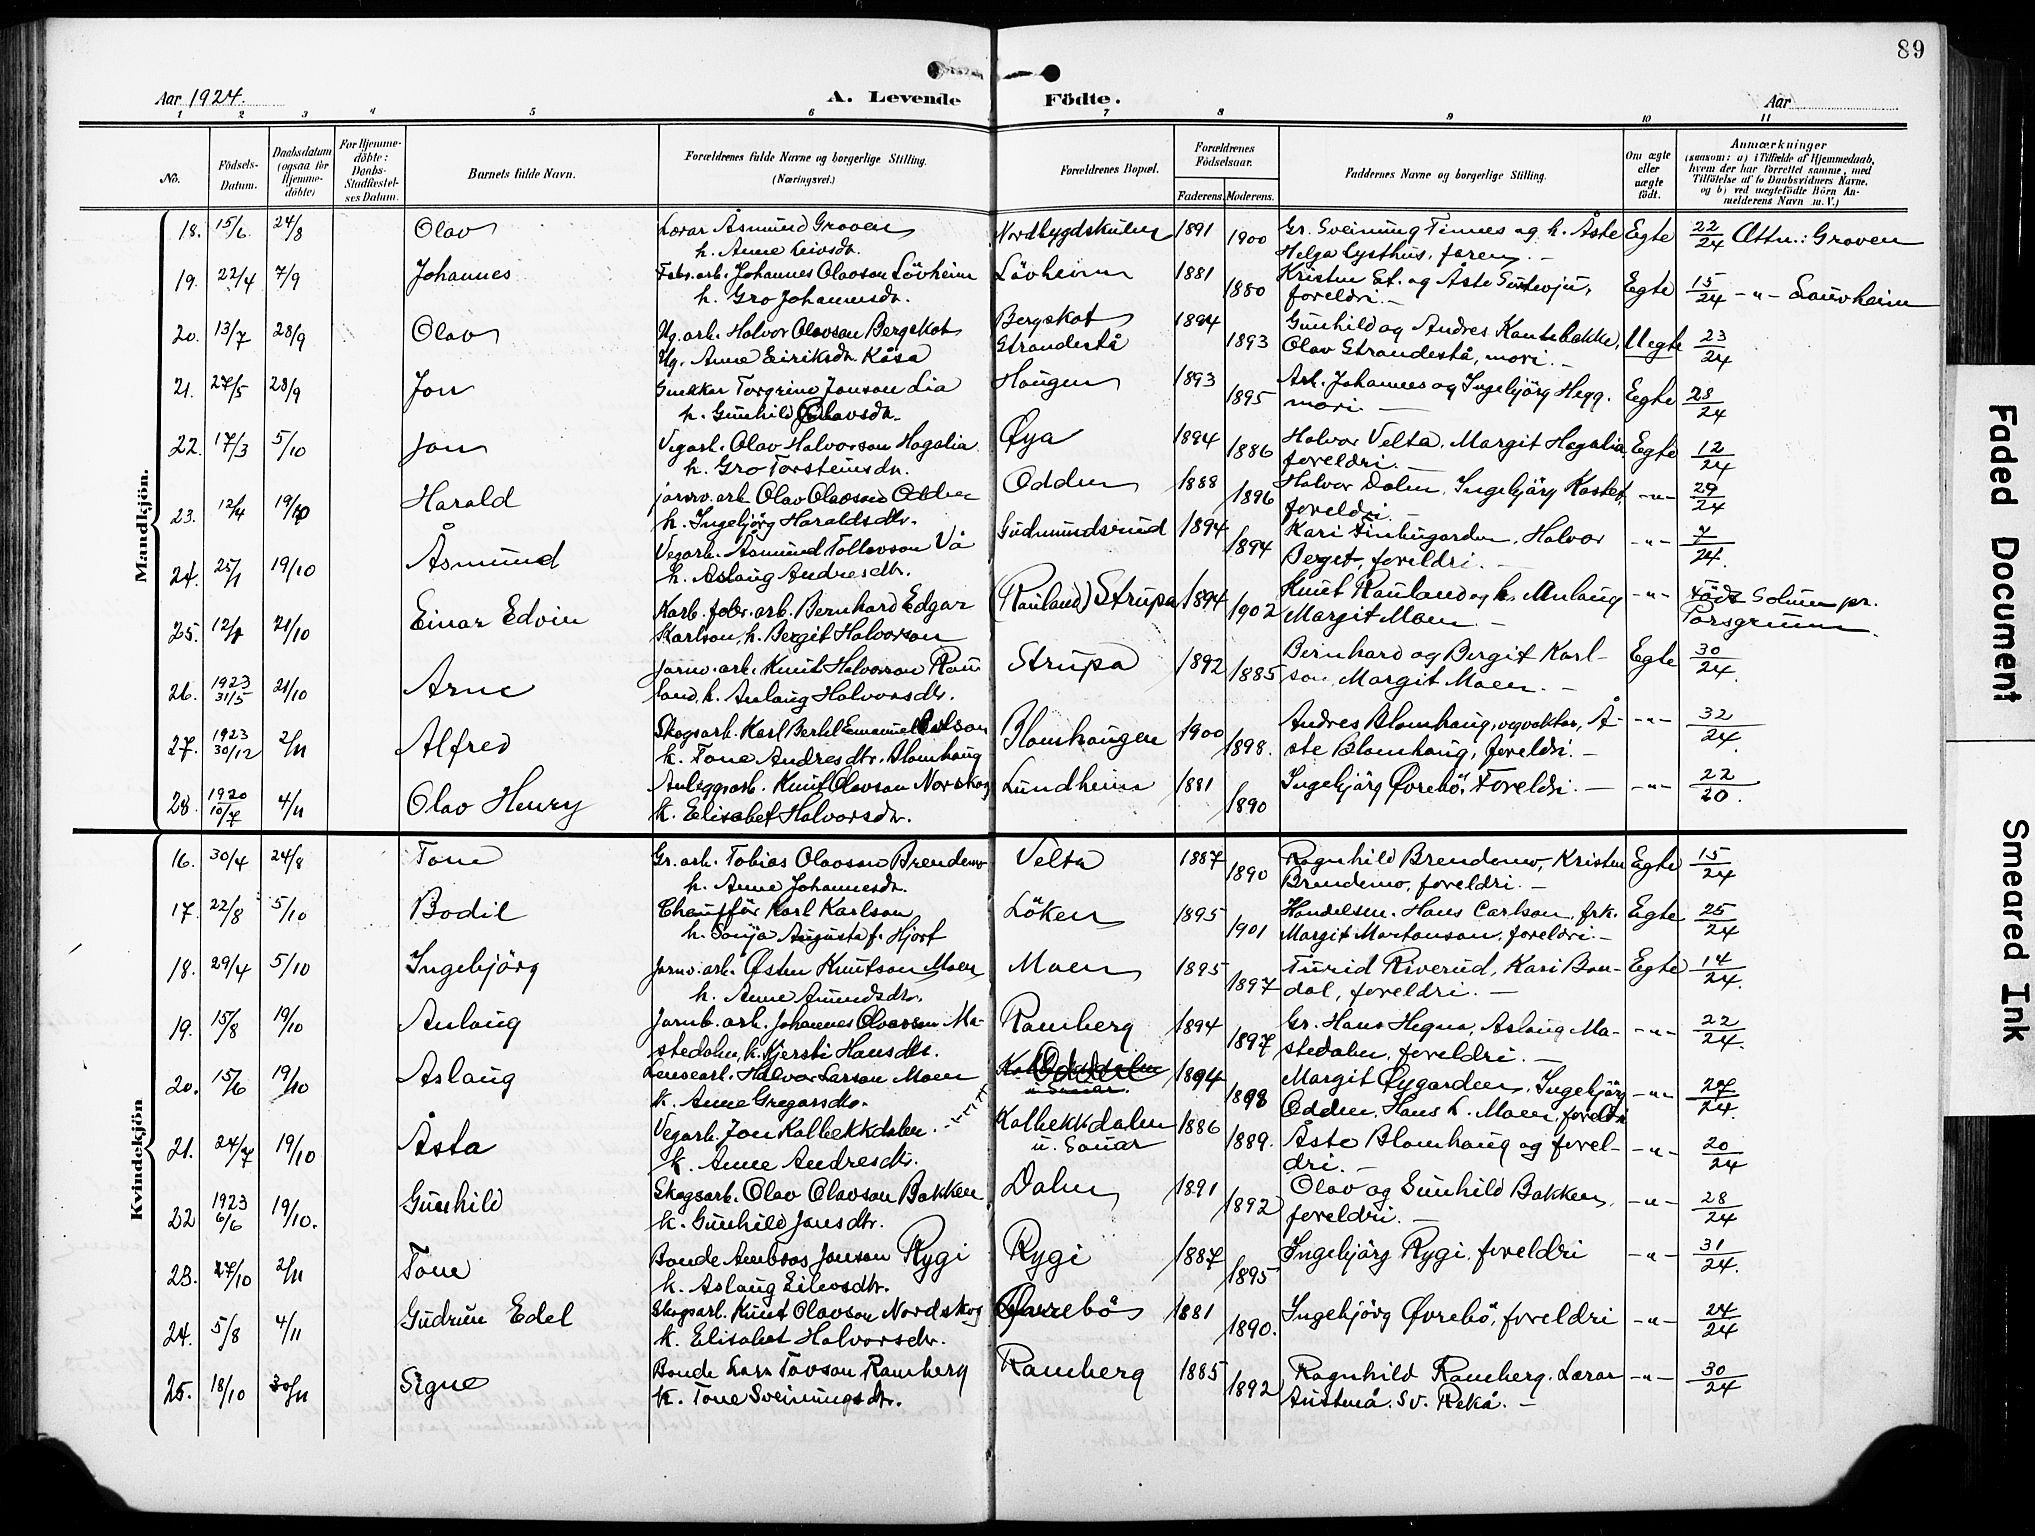 89
Aar 1924.
A. Levende Födte.
Aar
1 2 3 4 5 6 7 8 9 10 11
No.
Födsels-
Datum.
Daabsdatum
(ogsaa for
Hjemme-
döbte)
For Hjemme-
döbte:
Daabs-
Stadfæstel-
ses Datum.
Barnets fulde Navn.
Forældrenes fulde Navne og borgerlige Stilling.
(Næringsvei.)
Forældrenes Bopæl.
Forældrenes
Födselsaar.
Faderens. Moderens.
Faddernes Navne og borgerlige Stilling.
Om ægte
eller
uægte
födt.
Anmærkninger
(saasom: a) i Tilfælde af Hjemmedaab,
hvem der har forrettet samme, med
Tilföielse af to Daabsvidners Navne,
og b) ved uægtefödte Börn An-
melderens Navn m. V.)
Mandkjön.
18. 15/6 24/8 Olav Lærar Åsmund Groven Nordbygdskulen 1891 Gr. Sveinung Tinnes og k. Åste Egte 22/24 Ættn.: Groven
h. Anne Leivsdtr. 1900 Helga Lysthus, foren. -
19. 22/4 7/9 Johannes Fabr.arb. Johannes Olavson Lövheim Lövheim 1881 Kristen Et. og Åste Egte 15/24 -"- Lauvheim
h. Gro Johannesdr. 1880 foreldri. -
20. 13/7 28/9 Olav Ug. arb. Halvor Olavson Bergskot Bergskot 1894 Gunhild og Andres Kantebakke, Uegte 23/24
Ug. Anne Eiriksdr. Kåsa Strandestå 1893 Olav Strandestå, mori. -
21. 27/5 28/9 Jon Snekkar Torgrim Jonson Lia Haugen 1893 Arb. Johannes og Ingebjörg Hegg. Egte 28/24
h. Gunhild Olavsdr. 1895 mori -
22. 17/3 5/10 Jon Vegarb. Olav Halvorson Hagalia Øya 1894 Halvor Velta, Margit Hagalia, Egte 12/24
h. Gro Torsteinsdr. 1886 foreldri. -
23. 12/4 19/10 Harald jarnv.arb. Olav Olavson Odden Odden 1888 Halvor Dalen, Ingebjörg Kastet, -"- 29/24
h. Ingebjörg Haraldsdtr. 1896 foreldri. -
24. 25/1 19/10 Åsmund Vegarb. Åsmund Tollevson Vå Gudmundsrud 1894 Kari Finbugarden, Halvor -"- 7/24.
h. Aslaug Andresdtr. 1894 Berget, foreldri. -
25. 21/10 Einar Edvin Karb. fabr. arb. Bernhard Edgar (Rauland) Strupa 1894 Knut Rauland og k. Anlaug -"- Födt Solum pr.
Karlson, h. Bergit Halvorson 1902 Margit Moen. - Porsgrunn.
26. 1923 31/5 21/10 Arne Jarnv. arb. Knut Halvorson Rau Strupa 1892 Bernhard og Bergit Karl- Egte 30/24.
land, h. Anlaug Halvorsdtr. 1885 son, Margit Moen. -
27. 1923 30/12 2/11 Alfred Skogsarb. Karl Bertil Emanuel Blomhaugen 1900 Andres Blomhaug, vegvaktar, Å- -"- 32/24.
k. Tone Andresdtr. Blomhaug 1898. ste Blomhaug, foreldri. -
28. 1920 10/7 4/11 Olav Henry Anleggsarb. Knut Olavson Norskog Lundheim 1881 Ingebjörg Øvrebö, Foreldri. - -"- 22/20.
k. Elisabet Halvorsdr. 1890
Kvindekjön
16. 30/4 24/8 Tone Gr. arb. Tobias Olavson Brendemo Velta 1887 Ragnhild Brendemo, Kristen Egte 15/24
h. Anne Johannesdr. 1890 Brendemo, foreldri. -
17. 22/8 5/10 Bodil Chaufför Karl Karlson Löken 1895 Handelsm. Hans Carlson, frk. Egte 25/24
h. Sonja Augusta f. Hjort 1901 Margit Martonson, foreldri. -
18. 29/4 5/10 Ingebjörg Jarnv. arb. Østen Knutson Moen Moen 1895 Turid Riverud, Kari Bon- Egte 14/24.
h. Anne Åmundsdtr. 1897 dal, foreldri. -
19. 15/8 19/10 Anlaug Jarnb. arb. Johannes Olavson Ma- Ramberg 1894 Gr. Hans Hegna, Aslaug Ma- -"- 22/24.
stedalen, k. Kjersti Hansdtr. 1897 stedalen, foreldri. -
20. 15/6 19/10 Aslaug Lensearb. Halvor Larson Moen Odden 1894 Margit Øygarden, Ingebjörg -"- 27/24.
k. Anne Gregarsdtr. 1898 Odden, Hans L. Moen, foreldri
21. 24/7 19/10 Åsta Vegarb. Jon Kolbekkdalen. Kolbekkdalen 1886 Åste Blomhaug og forel- -"- 20/24
k. Anne Andresdtr. u. Sauar 1889. dri. -
22 1923 6/6 19/10. Gunhild Skogsarb. Olav Olavson Bakken Dalen 1891 Olav og Gunhild Bakken, -"- 28/24
k. Gunhild Jonsdtr. 1892 foreldri. -
23. 27/10 2/11 Tone Bonde Ambros Jonson Rygi Rygi 1887 Ingebjörg Rygi, foreldri -"- 31/24.
k. Aslaug Eilevsdtr. 1895
24. 5/8 4/11 Gudrun Edel Skogsarb. Knut Olavson Nordskog Øvrebö 1881 Ingebjörg Øvrebö, foreldri -"- 24/24
k. Elisabet Halvorsdr. 1890.
25. 18/10 30/11 Signe Bonde Lars Tovson Ramberg Ramberg 1885 Ragnhild Ramberg, Lærar -"- 30/24
k. Tone Sveinungsdtr. 1892 Austmå. Sv. Rekå. -
Faded Document
Smeared Ink